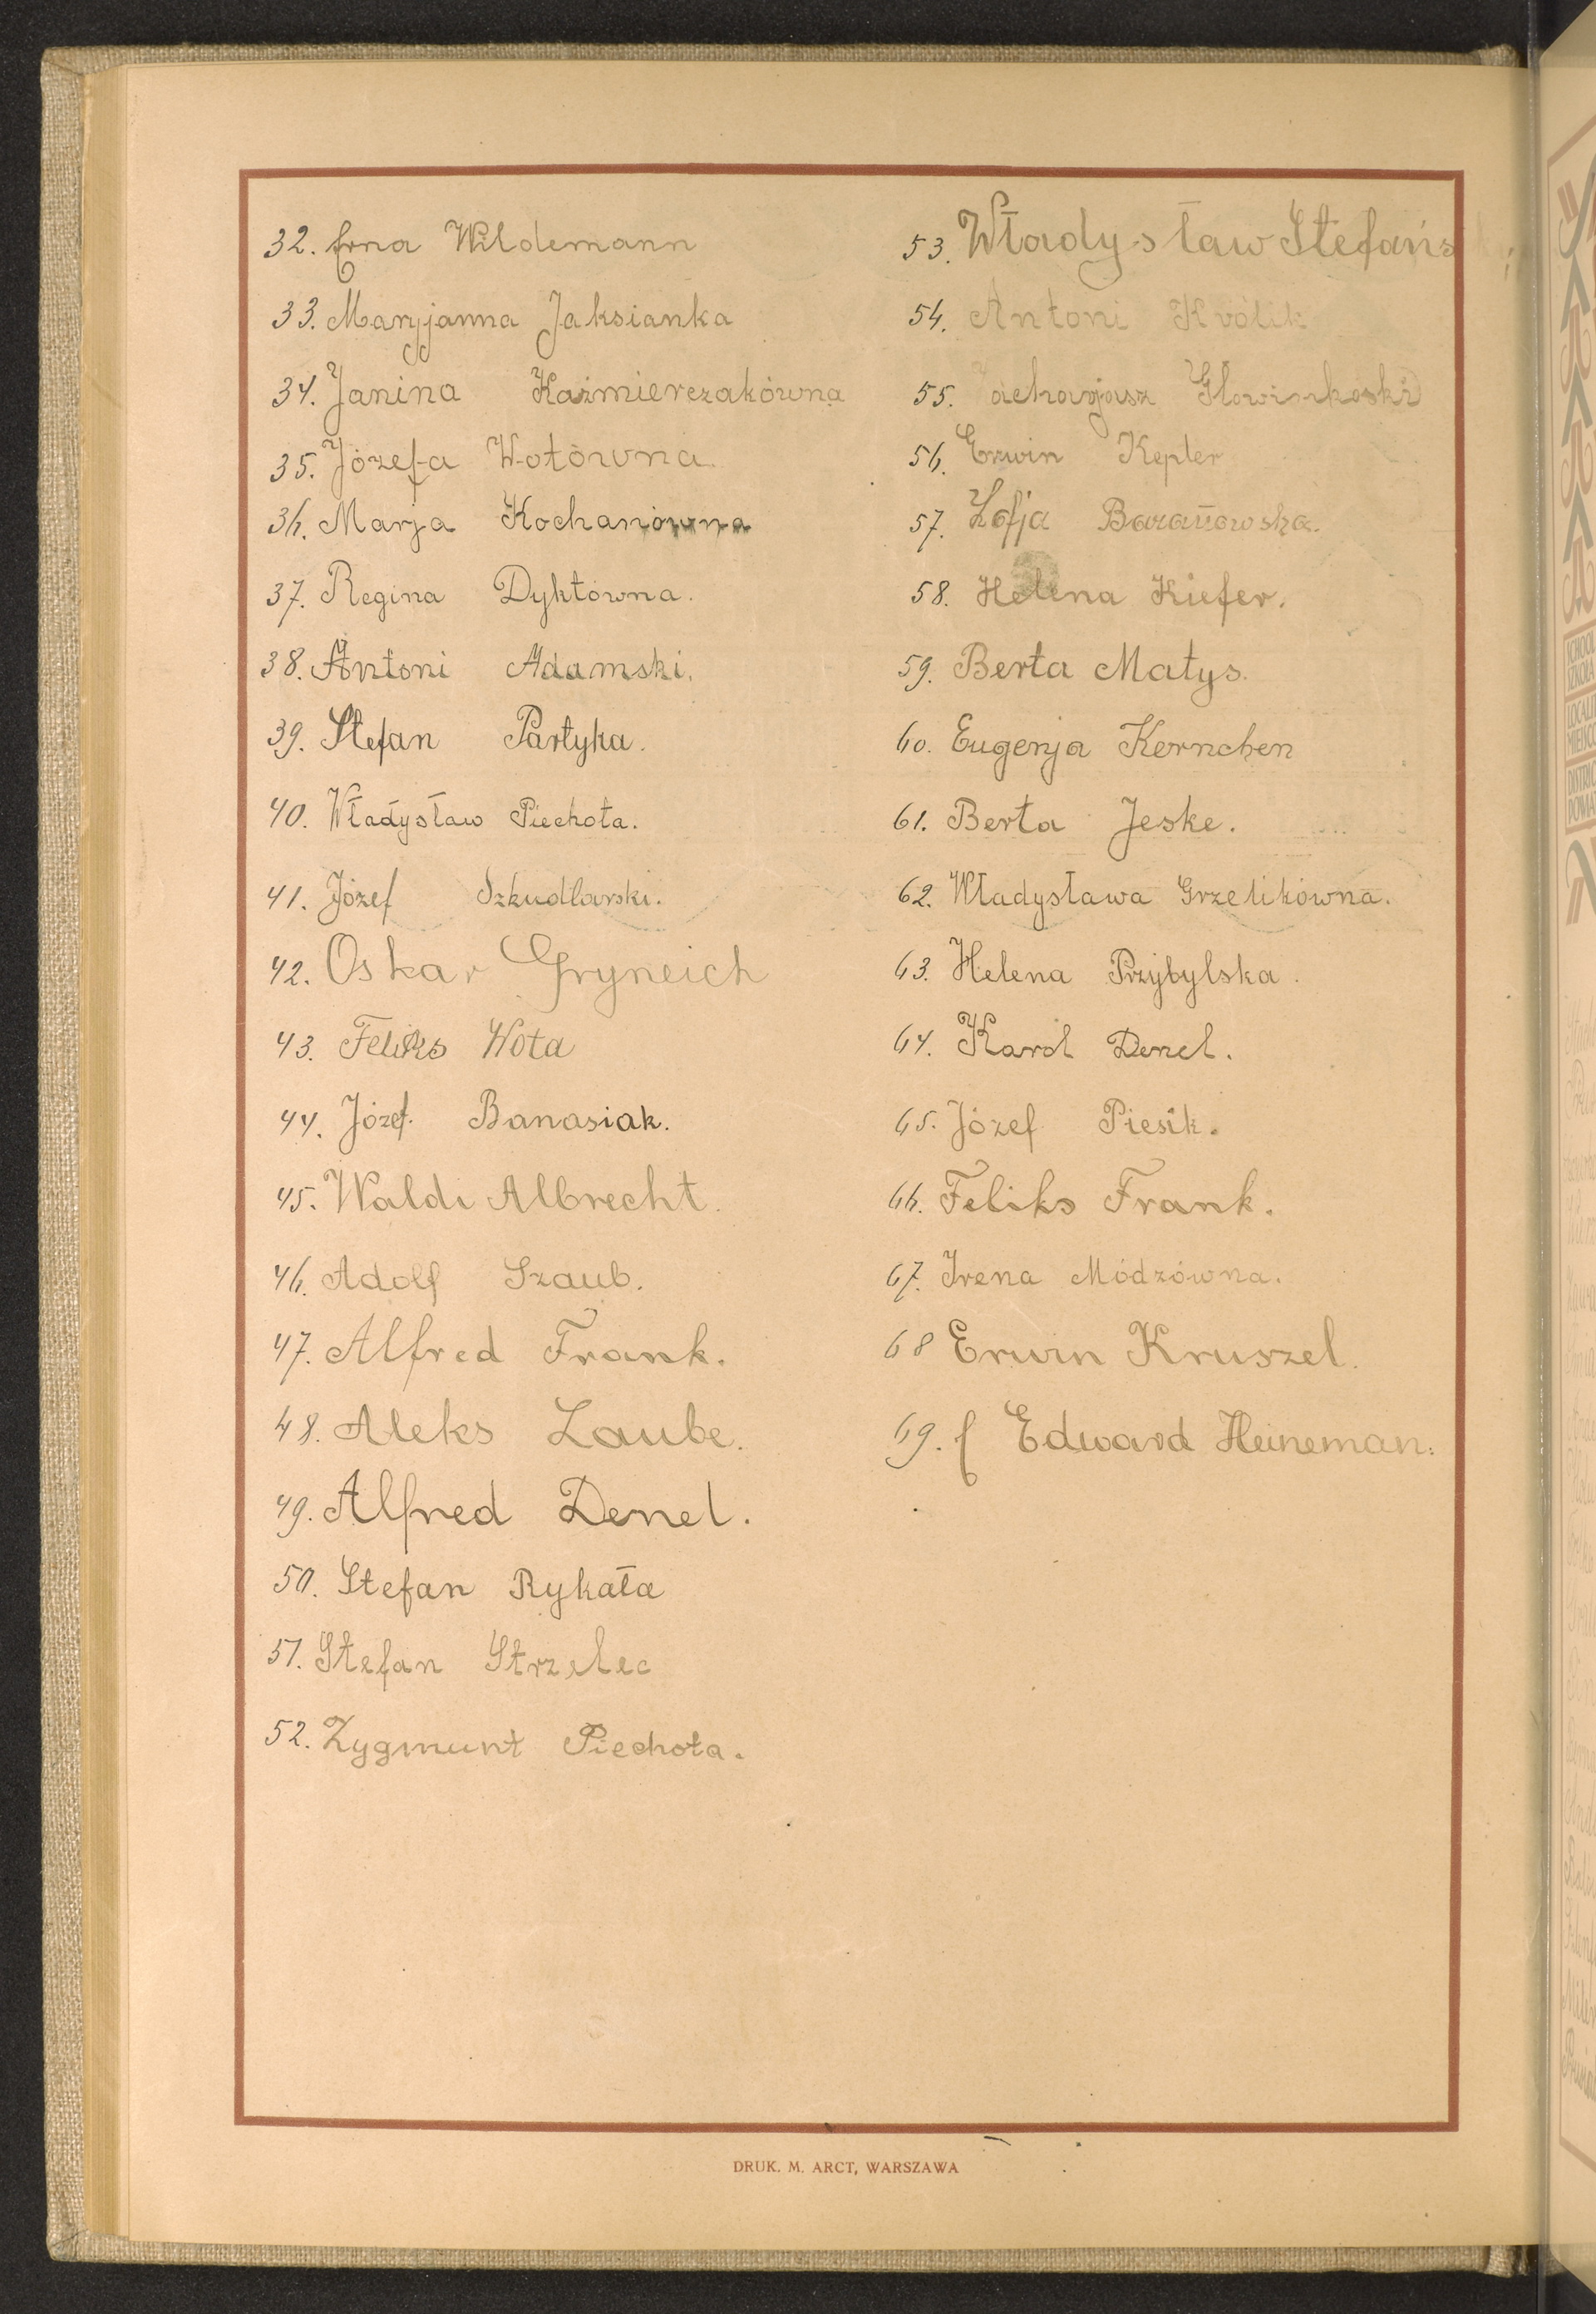 32. Erna Wildemann
33. Maryjanna Jaksianka
34. Janina Kaźmierczakówna
35. Józefa Wotówna.
36. Marja Kochanówna
37. Regina Dyktówna.
38. Antoni Adamski.
39. Stefan Partyka.
40. Władysław Piechota.
41. Józef Szkudlarski.
42. Oskar Gryneich
43. Feliks Wota
44. Józef Banasiak.
45. Waldi Albrecht.
46. Adolf Szaub.
47. Alfred Frank.
48. Aleks Laube.
49. Alfred Denel.
50. Stefan Rykała
51. Stefan Strzelec
52. Zygmunt Piechota.
53. Władysław Stefańs
54. Antoni Królik
55.
56. Erwin Kepler
57. Zofja Baranowska.
58. Helena Kiefer.
59. Berta Matys.
60. Eugenja Kernchen
61. Berta Jeske.
62. Władysława Grzelikówna.
63. Helena Przybylska.
64. Karol Denel.
65. Józef Piesik.
66. Feliks Frank.
67. Irena Módzówna.
68 Erwin Kruszel.
69. Edward Heineman.
DRUK. M. ARCT, WARSZAWA